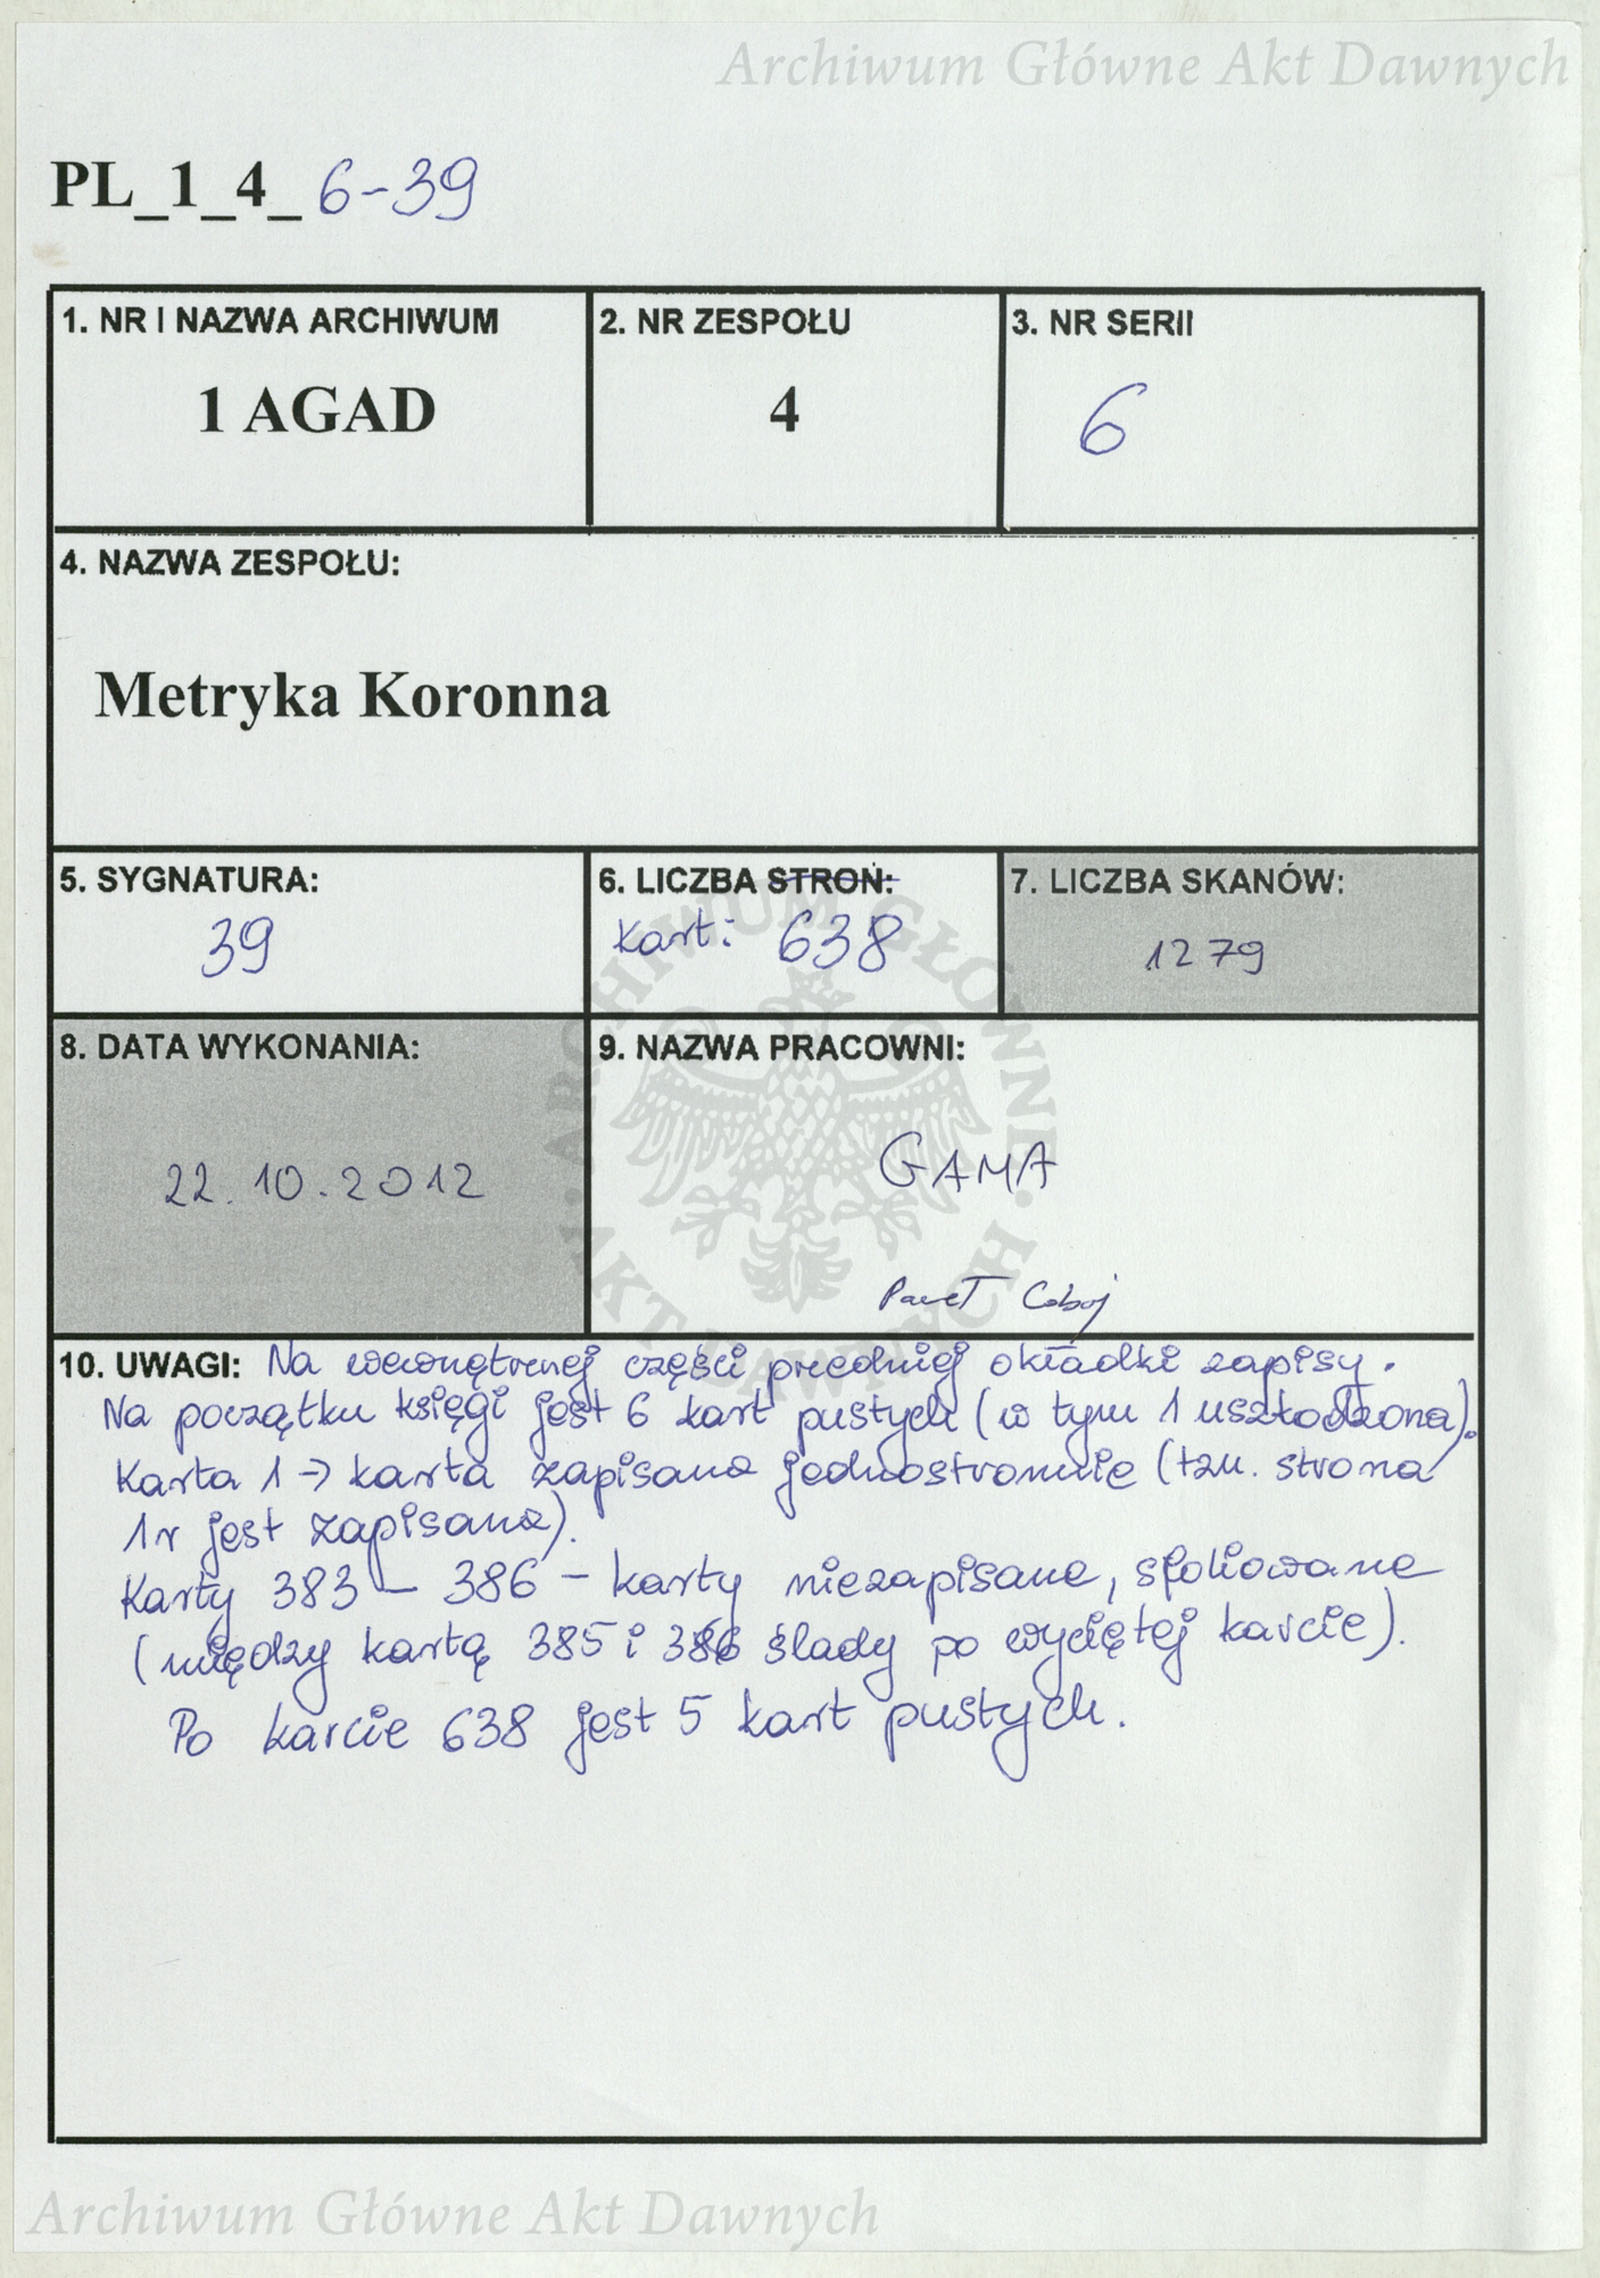 Archiwum Główne Akt Dawnych
PL_1_4_ 6-39
1. NR I NAZWA ARCHIWUM
1 AGAD
2. NR ZESPOŁU
4
3. NR SERII
6
4. NAZWA ZESPOŁU:
Metryka Koronna
5. SYGNATURA:
39
6. LICZBA STRON:
kart: 638
7. LICZBA SKANÓW:
1279
8. DATA WYKONANIA:
22.10.2012
9. NAZWA PRACOWNI:
GAMA
Paweł
ARCHIWUM GŁÓWNE · AKT DAWNYCH ·
10. UWAGI: Na wewnętrznej części przedniej okładki zapisy.
Na początku księgi jest 6 kart pustych (w tym 1 uszkodzona).
Karta 1 → karta zapisana jednostronnie (tzn. strona
1r jest zapisana).
Karty 383 – 386 – karty niezapisane, sfoliowane
(między kartą 385 i 386 ślady po wyciętej karcie).
Po karcie 638 jest 5 kart pustych.
Archiwum Główne Akt Dawnych